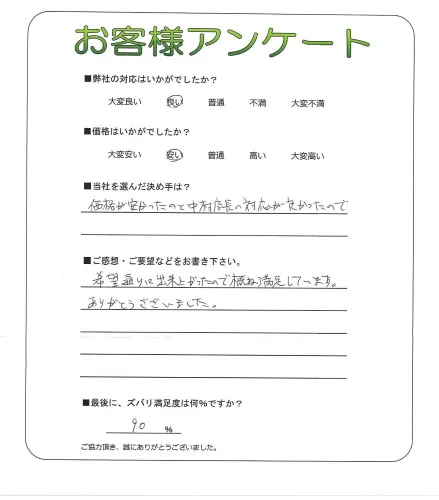 お客様アンケート
■弊社の対応はいかがでしたか？
大変良い 良い 普通 不満 大変不満
■価格はいかがでしたか？
大変安い 安い 普通 高い 大変高い
■当社を選んだ決め手は？
価格が安かったのと中村店長の対応が良かったので
■ご感想・ご要望などをお書き下さい。
希望通りに出来上がったので概ね満足しています。
ありがとうございました。
■最後に、ズバリ満足度は何%ですか？
90 %
ご協力頂き、誠にありがとうございました。